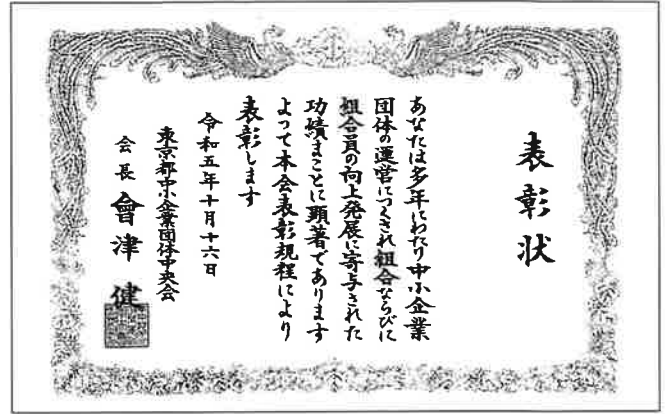 表彰状
あなたは多年にわたり中小企業
団体の運営につくされ組合ならびに
組合員の向上発展に寄与された
功績まことに顕著であります
よって本会表彰規程により
表彰します
令和五年十月十六日
東京都中小企業団体中央会
会長 會津 健